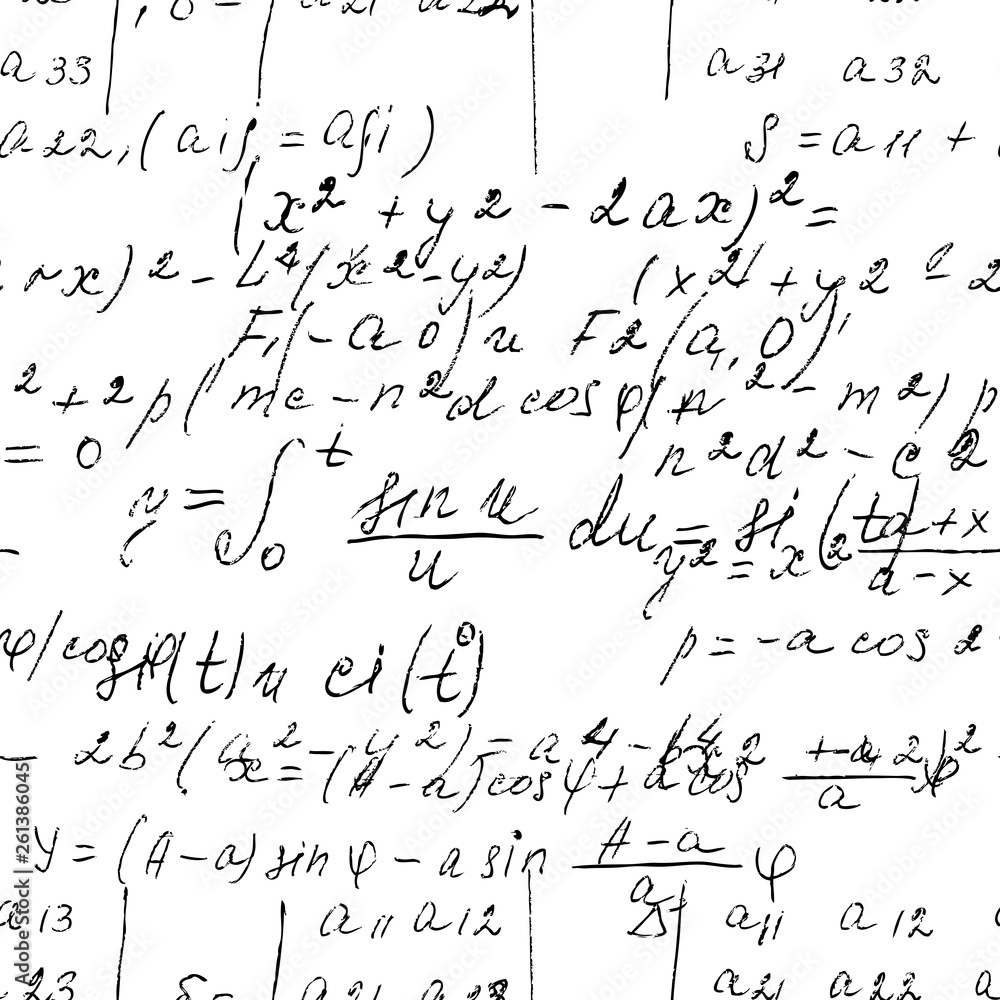 a33 a31 a32
a22, (aij = aji) S = a11 +
(x² + y2 - 2ax)² =
x)² - L⁴(x² - y2) (x² + y2
F1(-a 0) и F2(a, 0),
² + 2p(mc - n²d cosφ)(n² - m²) p
= 0 n²d² - c2
y = ∫₀ᵗ sin u / u du = si (t a + x
y² = x² a - x
φ/cosφ si(t) и ci(t) p = -a cos 2
2b²(x² - y²) = a⁴ - b⁴
x = (A - a)cosφ + a cos a φ
y = (A - a) sin φ - a sin A - a / a φ
a13 a11 a12 Δ a11 a12
a23 δ = a21 a23 a21 a22
Adobe Stock | #261386045